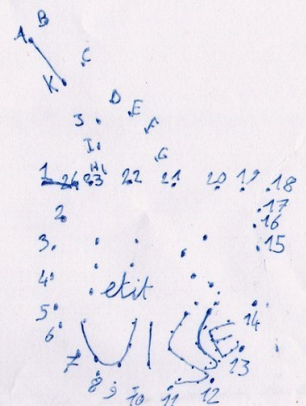 A B
C
K
D E
J F
I G
H
1 26 23 22 21 20 19 18
17
2 16
3 15
4
etit
5 14
6
7 13
8 9 10 11 12